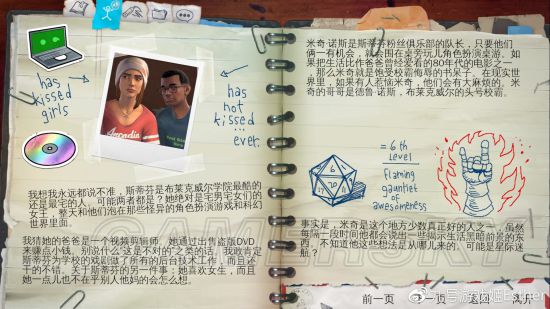 has
kissed
girls
has
not
kissed
...
ever.
我想我永远都说不准，斯蒂芬是布莱克威尔学院最酷的
还是最宅的人，    可能两者都是？她绝对是宅男宅女们的
女王，整天和他们泡在那些怪异的角色扮演游戏和科幻
世界里面。
我猜她的爸爸是一个视频剪辑师。她通过出售盗版DVD
来赚点小钱。别说什么‘这是不对的’之类的话。我敢肯定
斯蒂芬为学校的戏剧做了所有的后台技术工作，而且还
干的不错。关于斯蒂芬的另一件事：她喜欢女生，而且
她一点儿也不在乎别人他妈的会怎么想。
米奇·诺斯是斯蒂芬粉丝俱乐部的队长，只要他们
俩一有机会，就会围在桌旁玩儿角色扮演桌游。如
果把生活比作爸爸曾经爱看的80年代的电影之一
，那么米奇就是饱受校霸侮辱的书呆子。在现实世
界里，如果有人惹恼米奇，他们会有大麻烦的。米
奇的哥哥是德鲁·诺斯，布莱克威尔的头号校霸。
= 6th
level
Flaming
gauntlet
of
awesomeness
事实是，米奇是这个地方少数真正好的人之一，虽然
每隔一段时间他都会说出一些揭示生活黑暗前景的东
西。不知道他这些想法是从哪儿来的。可能是星际迷
航？
GAMERSKY
前一页
一页
返回